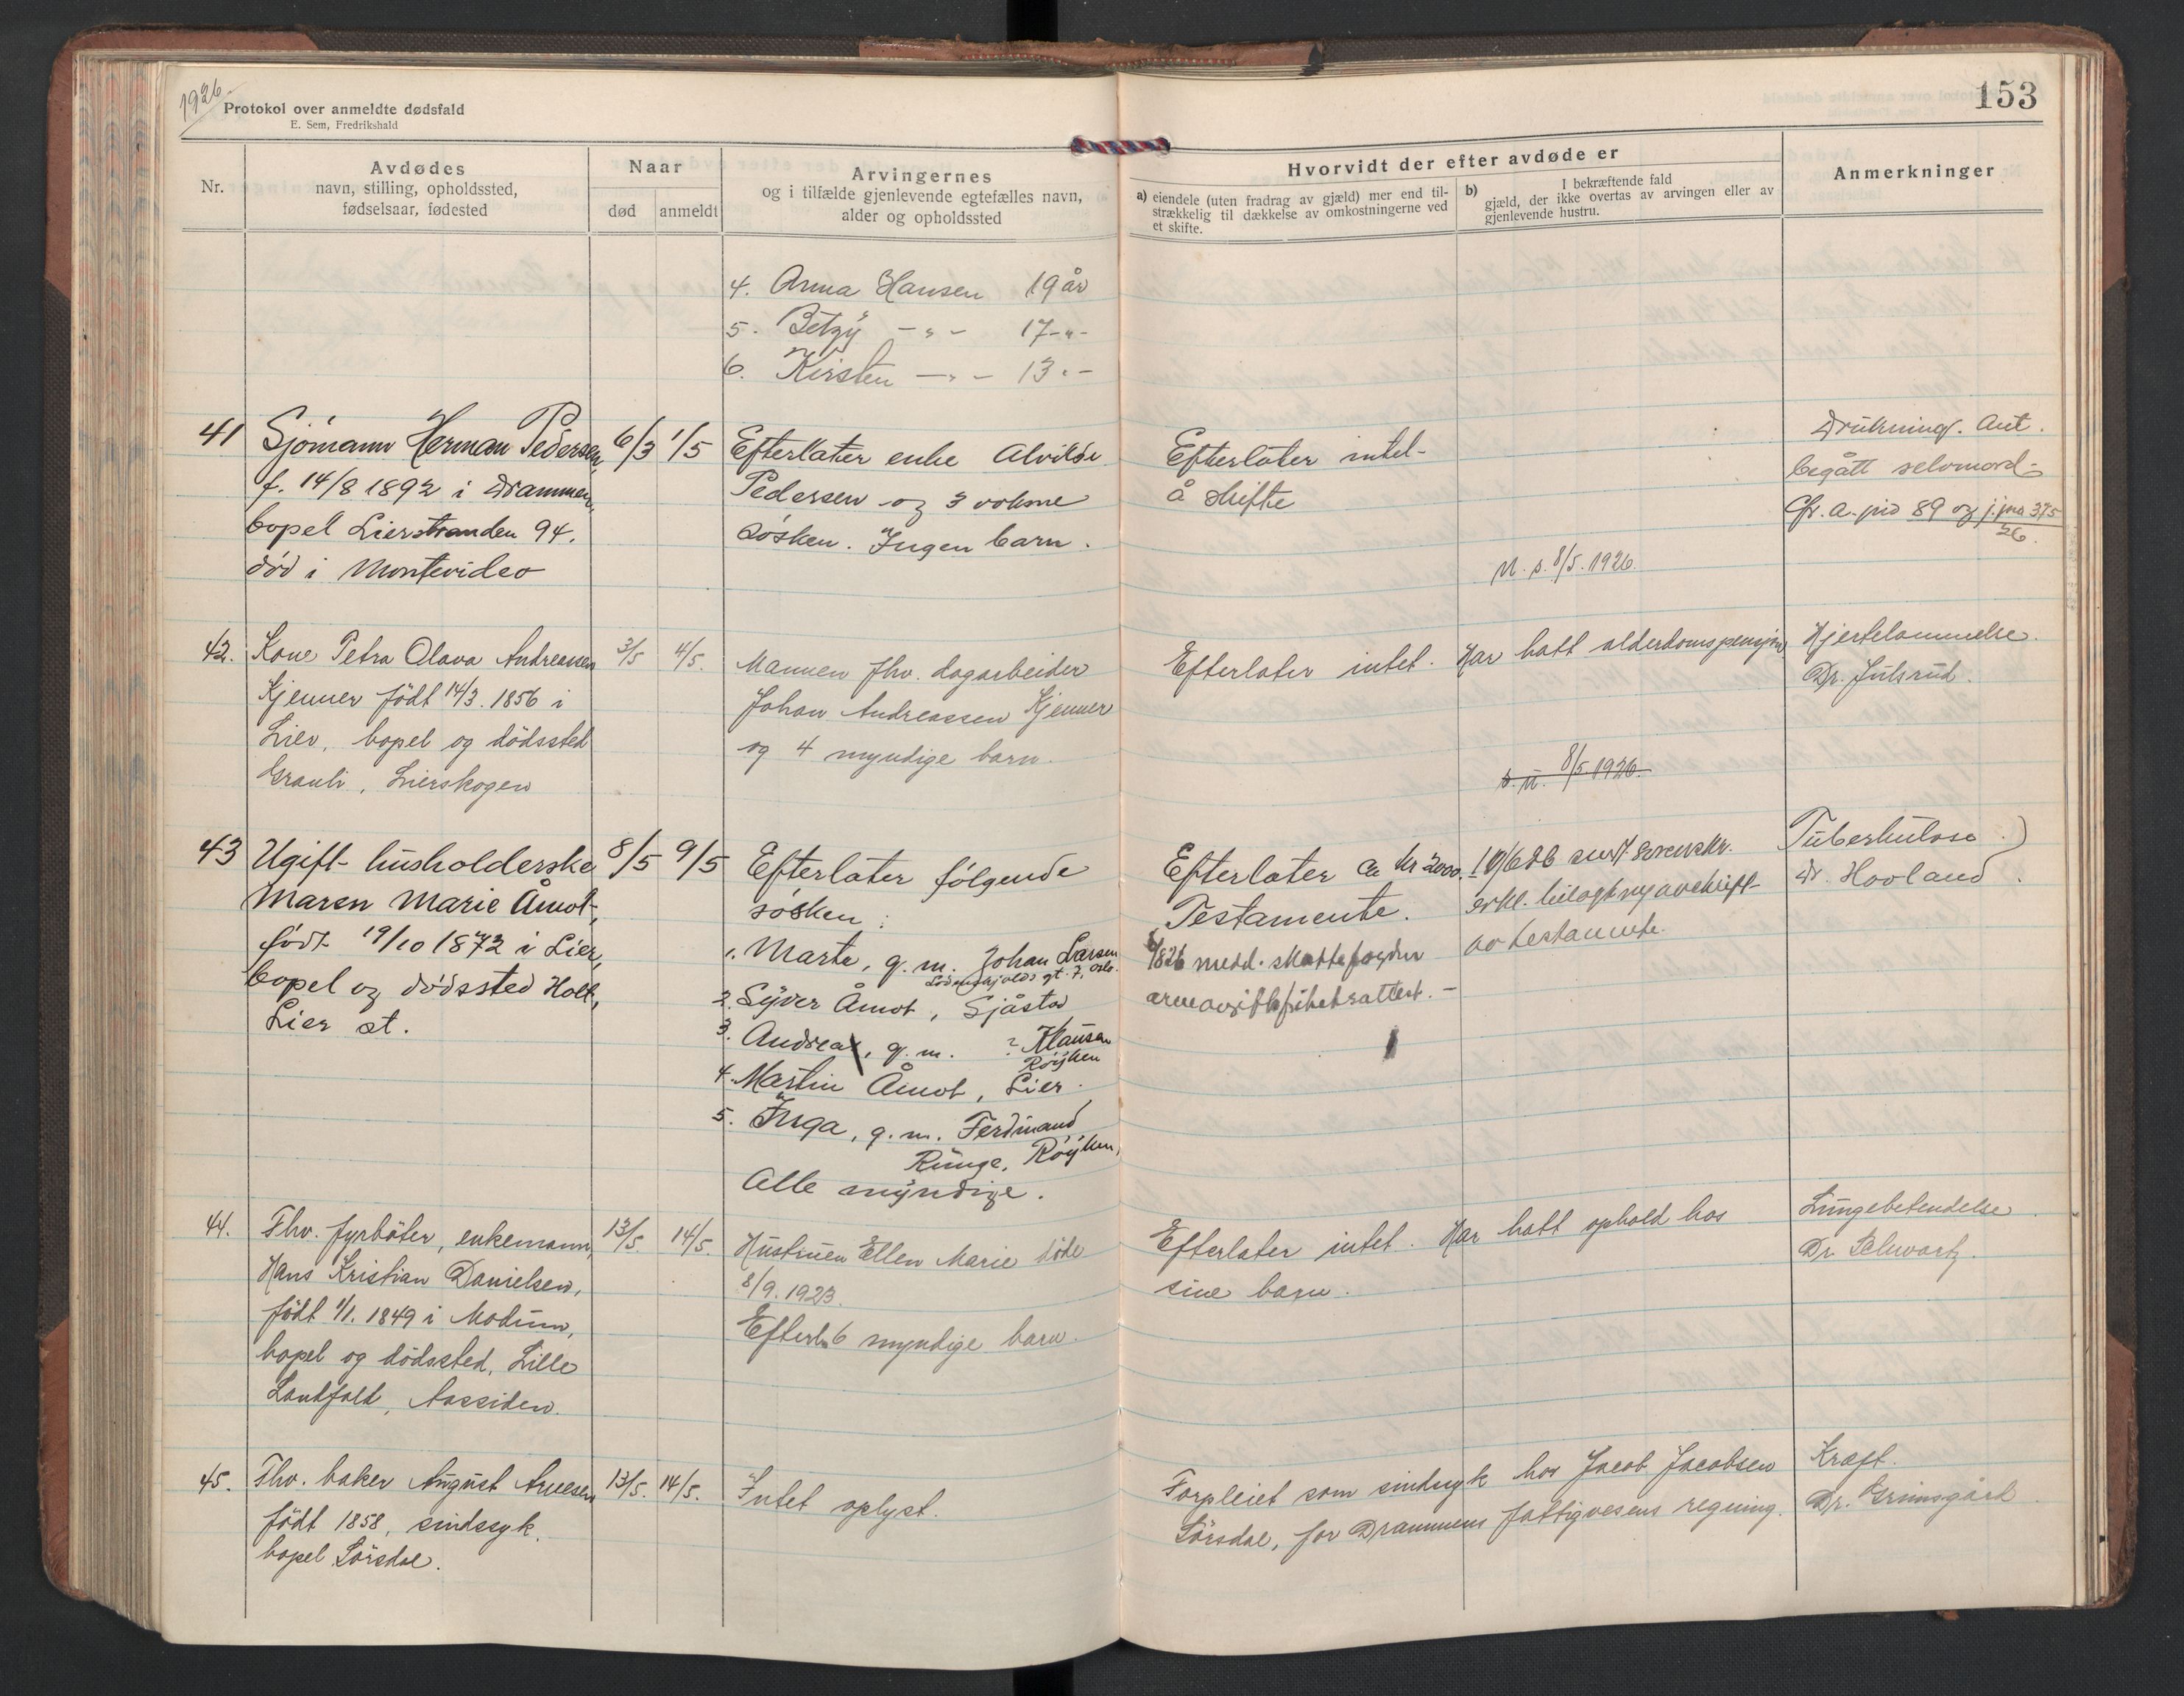 1926
Protokol over anmeldte dødsfald
E. Sem, Fredrikshald
153
Nr.
Avdødes
navn, stilling, opholdssted,
fødselsaar, fødested
Naar
død
anmeldt
Arvingernes
og i tilfælde gjenlevende egtefælles navn,
alder og opholdssted
Hvorvidt der efter avdøde er
a) eiendele (uten fradrag av gjæld) mer end til-
strækkelig til dækkelse av omkostningerne ved
et skifte.
b) I bekræftende fald
gjæld, der ikke overtas av arvingen eller av
gjenlevende hustru.
Anmerkninger
4. Anna Hansen 19 år
5. Betzy -"- 17 -"-
6. Kirsten -"- 13 "-
41
Sjømann Herman Pedersen
f. 14/8 1892 i Drammen,
bopel Lierstranden 94.
død i Montevideo
6/3
1/5
Efterlater enke Alvilde
Pedersen og 3 voksne
søsken. Ingen barn.
Efterlater intet
å skifte
N. s. 8/5. 1926.
Drukning. Ant.
begått selvmord
Cfr. a. 89 og j.jnr 375
26.
42.
Kone Petra Olava Andreassen
Kjenner født 14/3. 1856 i
Lier, bopel og dødssted
Grauli, Lierskogen
3/5
4/5.
Mannen fhv. dagarbeider
Johan Andreassen Kjenner
og 4 myndige barn.
Efterlater intet. Har hatt alderdomspensjon
s. N. 8/5. 1926.
Hjertelammelse.
Dr. Julsrud.
43
Ugift husholderske
Maren Marie Åmot,
født 19/10 1872 i Lier,
bopel og dødssted Holt,
Lier st.
8/5
9/5
Efterlater følgende
søsken:
1. Marte, g. m. Johan Larsen
gt. 7, Oslo.
2. Syver Åmot, Sjåstad
3. Andrea, g. m. ? Klausen
Røyken
4. Martin Åmot, Lier.
5. Inga, g. m. Ferdinand
Runge, Røyken,
Alle myndige.
Efterlater ca kr 2000.
Testamente.
26 medd. skattefogden
10/6 26
erkl. bilagt ny avskrift
av testamente.
Tuberkulose.
dr. Hovland.
44.
Fhv. fyrbøter, enkemann,
Hans Kristian Danielsen,
født 1/1. 1849 i Modum,
bopel og dødssted, Lille
Landfald, Aassiden.
13/5
14/5.
Hustruen Ellen Marie døde
8/9. 1923.
Efterl. 6 myndige barn.
Efterlater intet. Har hatt ophold hos
sine barn.
Lungebetendelse
Dr. Schwartz.
45.
Fhv. baker August Arnesen
født 1858, sindssyk.
bopel Sørsdal.
13/5.
14/5.
Intet oplyst.
Forpleiet som sindsyk hos Jacob Jacobsen
Sørsdal, for Drammens fattigvesens regning.
Kræft.
Dr. Grimsgård